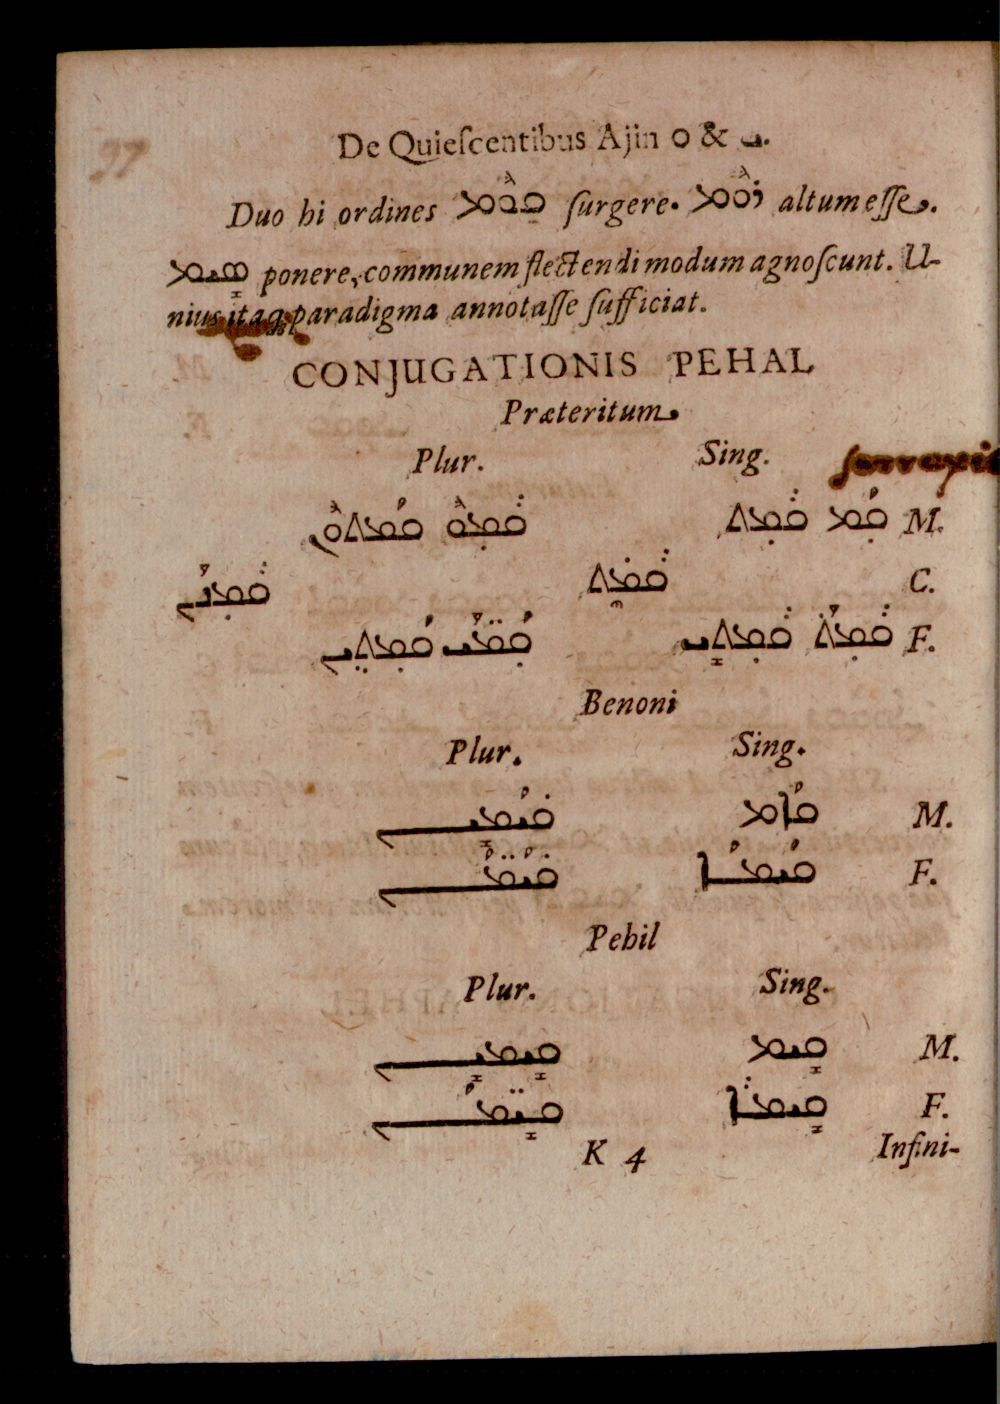 97
De Quieſcentibus Ajin ܘ & ܝ.
Duo hi ordines ܩܘܡ ſurgere. ܪܘܡ altum eſſe.
ܣܝܡ ponere, communem flectendi modum agnoſcunt. U-
nius itaq; paradigma annotaſſe ſufficiat.
CONJUGATIONIS PEHAL
Præteritum
Plur. Sing.
ܩܡܬܘܢ ܩܡܘ ܩܡܬ ܩܡ M.
ܩܡܢ ܩܡܬ C.
ܩܡܬܝܢ ܩܡܝ ܩܡܬܝ ܩܡܬ F.
Benoni
Plur. Sing.
ܩܝܡܝܢ ܩܐܡ M.
ܩܝܡܢ ܩܝܡܐ F.
Pehil
Plur. Sing.
ܩܝܡܝܢ ܩܝܡ M.
ܩܝܡܢ ܩܝܡܐ F.
K 4 Infini-